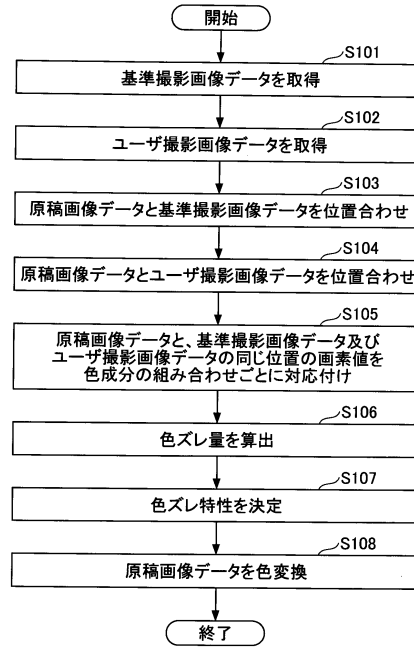 開始
S101
基準撮影画像データを取得
S102
ユーザ撮影画像データを取得
S103
原稿画像データと基準撮影画像データを位置合わせ
S104
原稿画像データとユーザ撮影画像データを位置合わせ
S105
原稿画像データと、基準撮影画像データ及び
ユーザ撮影画像データの同じ位置の画素値を
色成分の組み合わせごとに対応付け
S106
色ズレ量を算出
S107
色ズレ特性を決定
S108
原稿画像データを色変換
終了